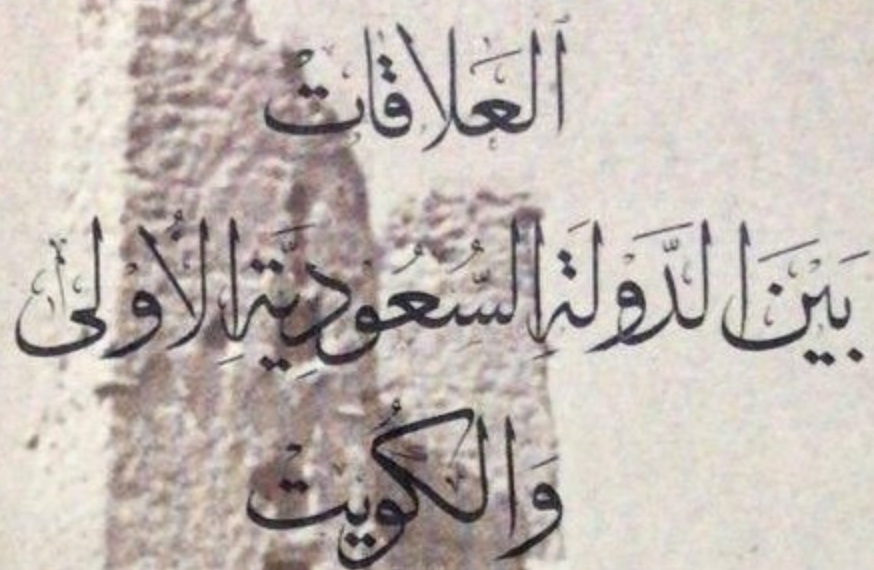 العَلاقاتْ
بَيْنَ الدَّوْلَةِ السُّعُودِيَّةِ الأُوْلىٰ
وَالكُويتْ